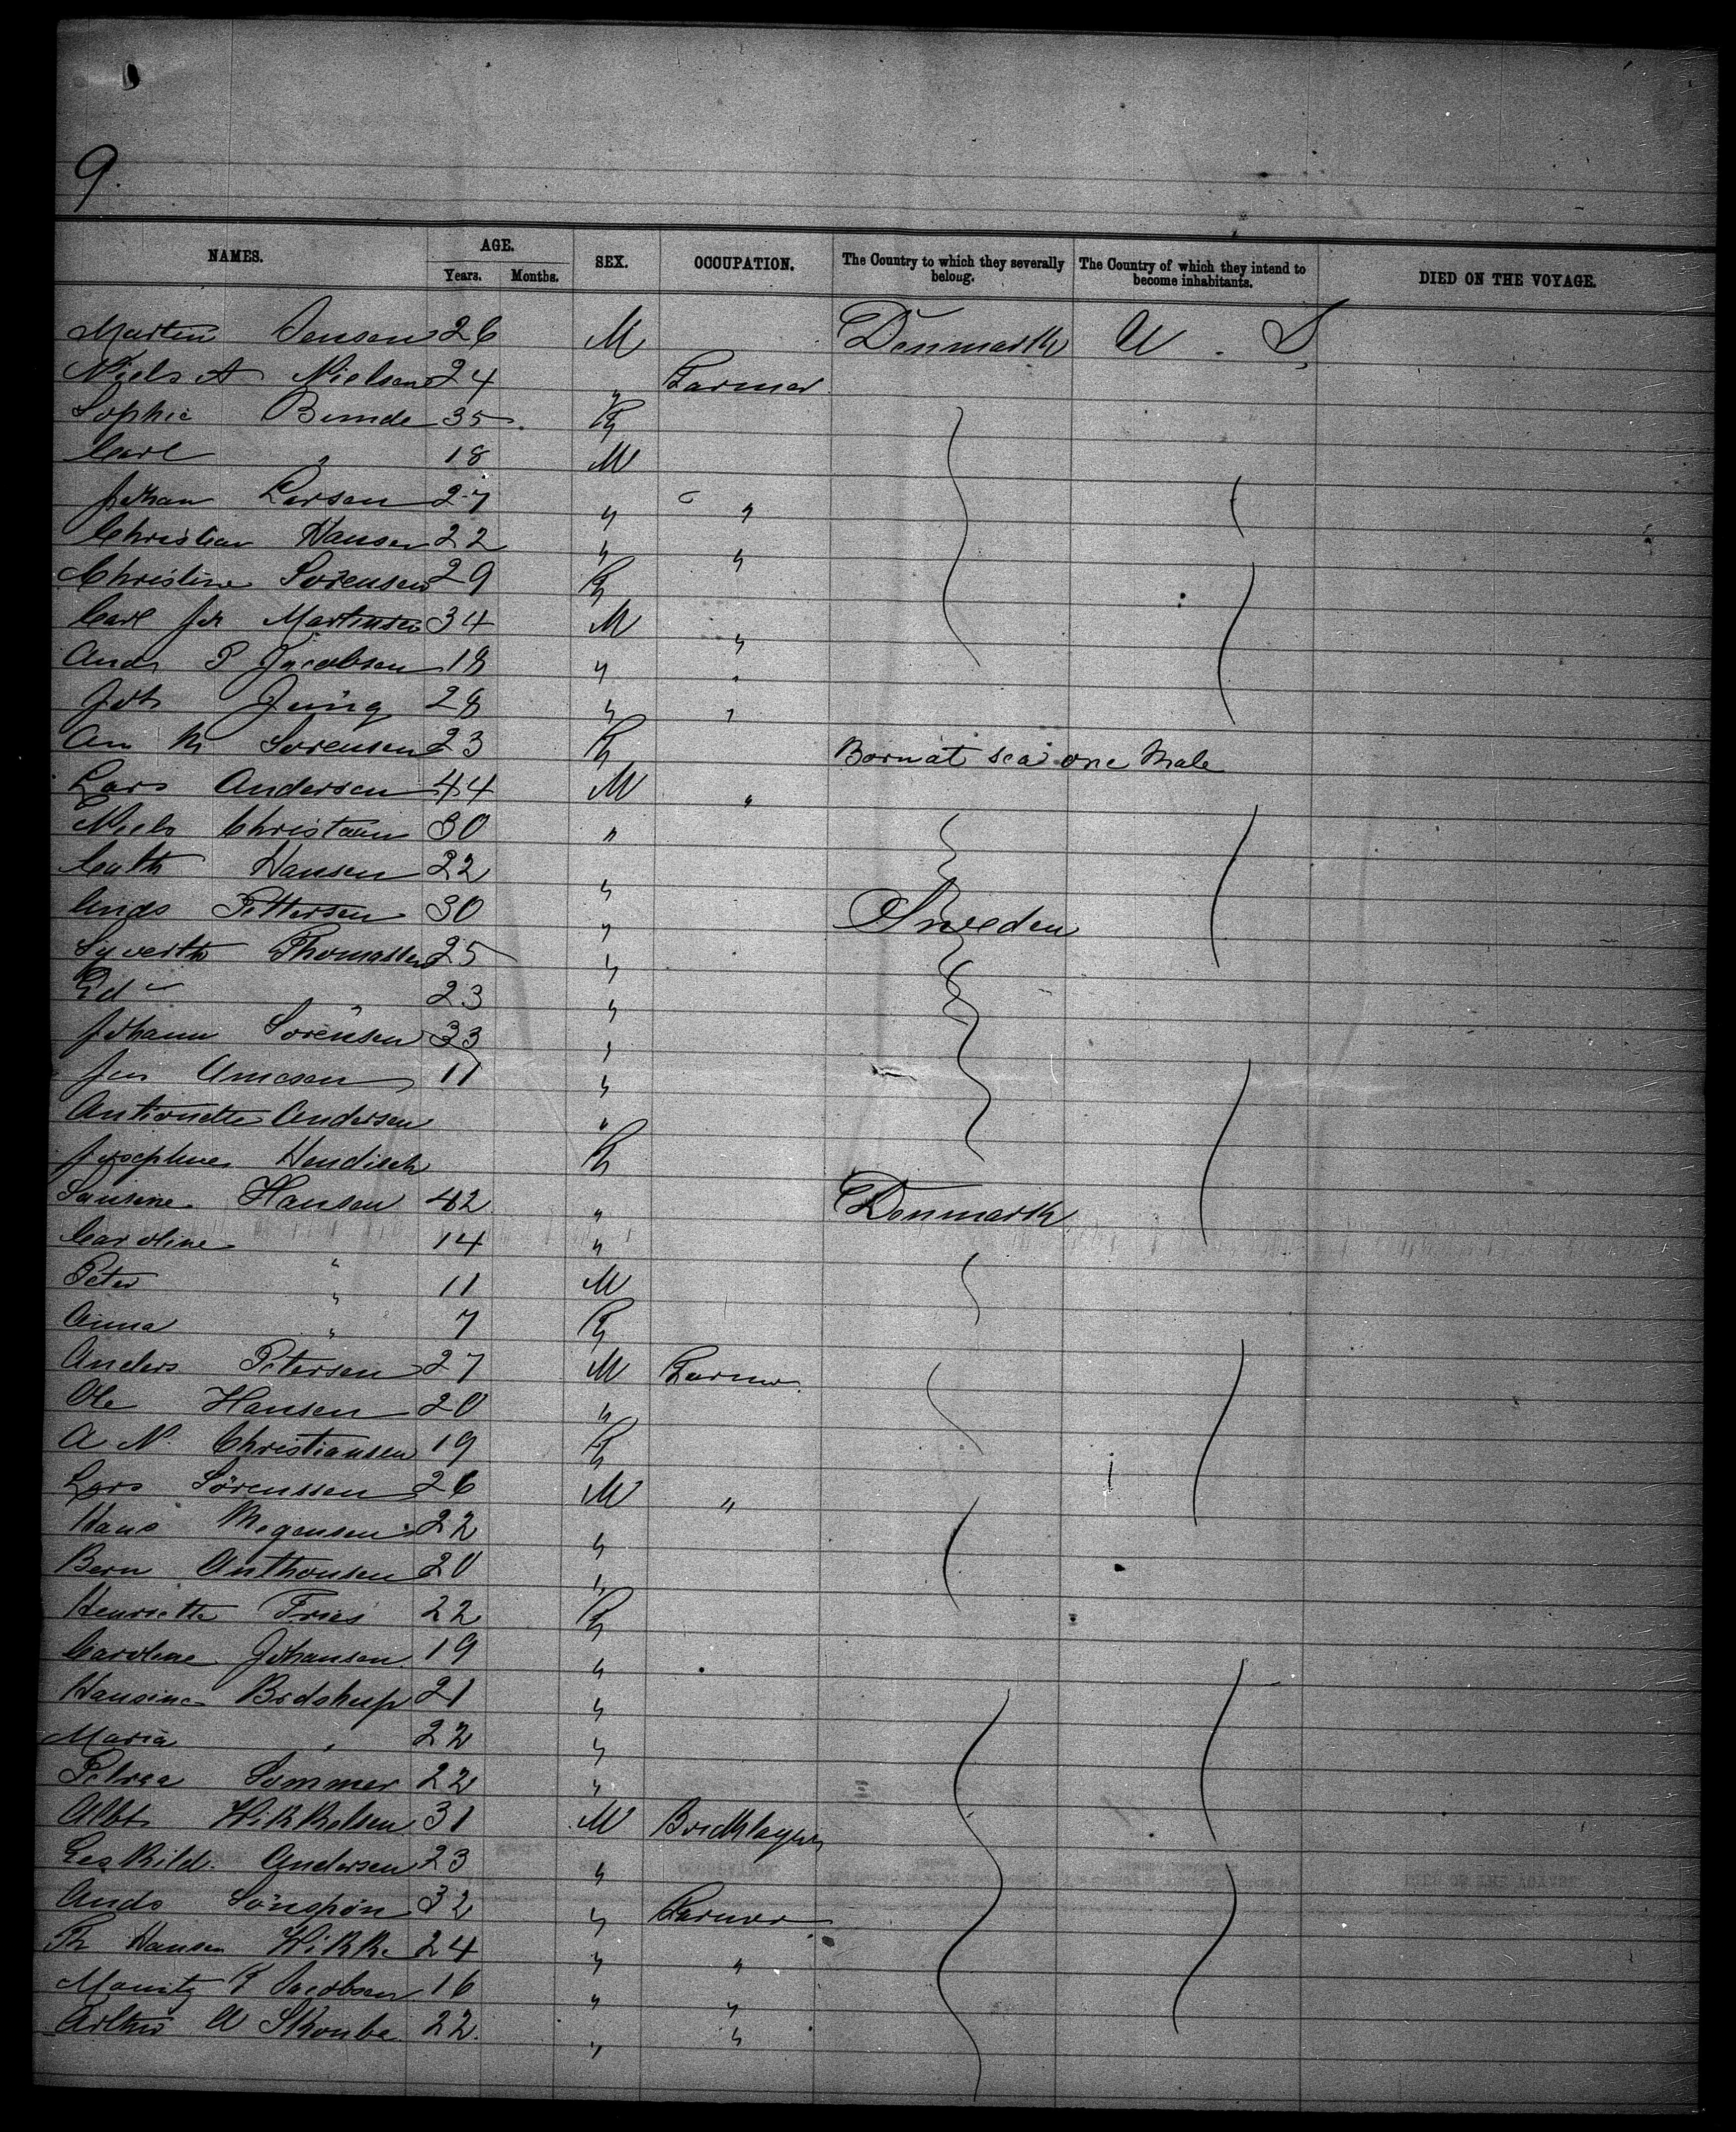 9.
NAMES. AGE. SEX. OCCUPATION. The Country to which they severally belong. The Country of which they intend to become inhabitants. DIED ON THE VOYAGE.
Years. Months.
Martin Jensen 26 M Denmark U. S.
Niels A Nielsen 24 " Farmer
Sophie Bunde 35 F
Carl " 18 M
Johan Larsen 27 " "
Christian Hansen 22 " "
Christine Sorensen 29 F
Carl Joh Martensen 34 M "
Ands P Jacobsen 18 " "
Joh Jung 28 " "
An M Sorensen 23 F Born at sea one Male
Lars Andersen 44 M "
Niels Christain 30 "
Cath Hansen 22 "
Ands Pettersen 30 " Sweden
Syverth Thomassen 25 "
Ed " 23 "
Johann Sorensen 33 "
Jen Arnesen 11 "
Antionette Andersen "
Josephine Hendisch F
Hansen 42 " Denmark
Caroline " 14 "
Peter " 11 M
Anna " 7 F
Anders Petersen 27 M Farmer
Ole Hansen 20 "
A N. Christiansen 19 F
Lars Sörenssen 26 M "
Hans Mogensen 22 "
Bern Anthonsen 20 "
Henriette Fries 22 F
Caroline Johansen 19 "
Hansine Brdskup 21 "
Maria " 22 "
Petrea Sommer 22 "
Albt Hikkelsen 31 M Bricklayer
Eskild Andersen 23 "
Ands 32 " Farmer
Th Hansen Hikke 24 " "
Mauritz F Jacobsen 16 " "
Arthur A Skouba 22. " "